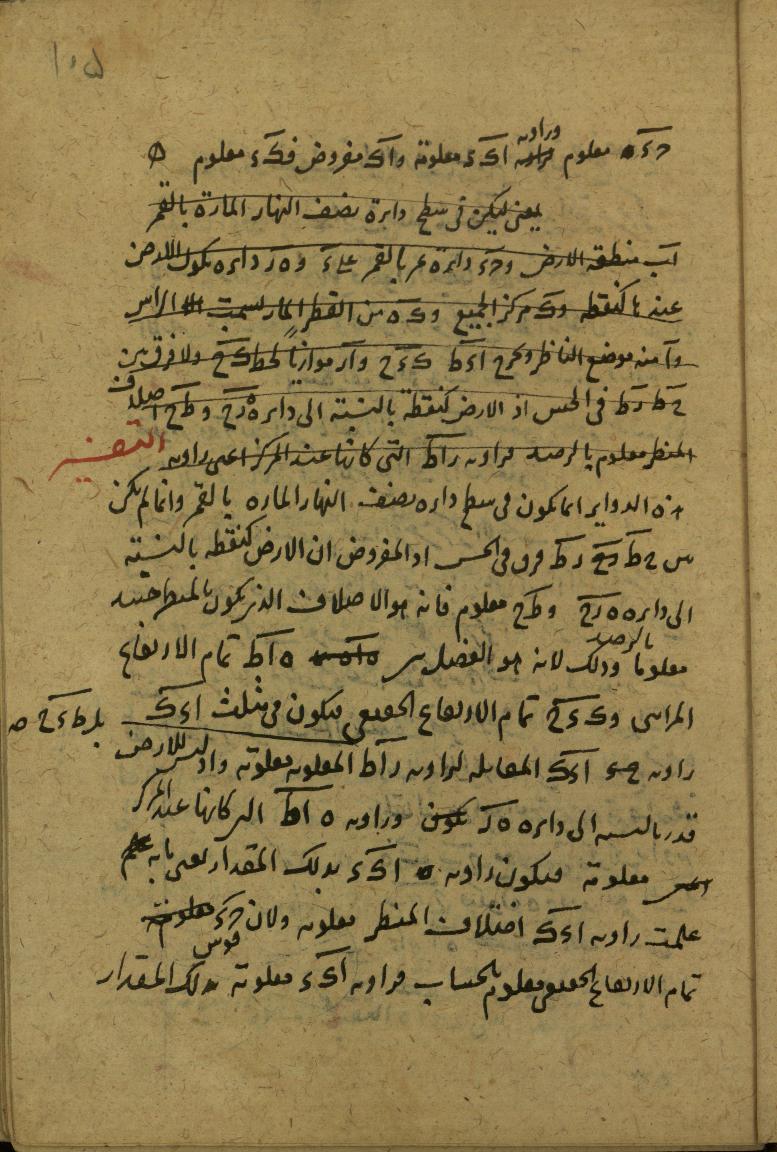 ١٠٥
حء معلوم وزاوية اكء معلومة واك مفروض فكء معلوم
يعنى ليكن فى سطح دايرة نصف النهار المارة بالقمر
اب منطقة الارض وحء دايرة تمر بالقمر على ء وه ر دايرة يكون الارض
عندها كنقطة وك مركز الجميع وك ه من القطر المار بسمت الراس
وا منه موضع الناظر ونخرج اءط كءح وار موازيا لخط كح ولا فرق بين
حط رط فى الحس اذ الارض كنقطة بالنسبة الى دايرة ه رح وطح اختلاف
المنظر معلوم بالرصد فزاوية راط التى كانها عند المركز اعنى زاوية
التفسير
هذه الدواير انما يكون فى سطح دايرة نصف النهار المارة بالقمر وانما لم يكن
بين حط رط فرق فى الحس اذ المفروض ان الارض كنقطة بالنسبة
الى دايرة ه رح وطح معلوم فانه هو الاختلاف الذى يكون بالمنظر حينئذ
معلوما بالرصد وذلك لانه هو الفضل بين ه اط تمام الارتفاع
المرائى وه ك ح تمام الارتفاع الحقيقى فيكون فى مثلث اءك
زاوية اءك المقابلة لزاوية راط المعلومة معلومة واذ ليس للارض
قدر بالنسبة الى دايرة ه ر وزاوية ه اط التى كانها عند المركز
معلومة فيكون زاوية اكء بذلك المقدار اعنى بما به
علمت زاوية اءك اختلاف المنظر معلومة ولان قوس حء
تمام الارتفاع الحقيقى معلوم بالحساب فزاوية اكء معلومة بذلك المقدار